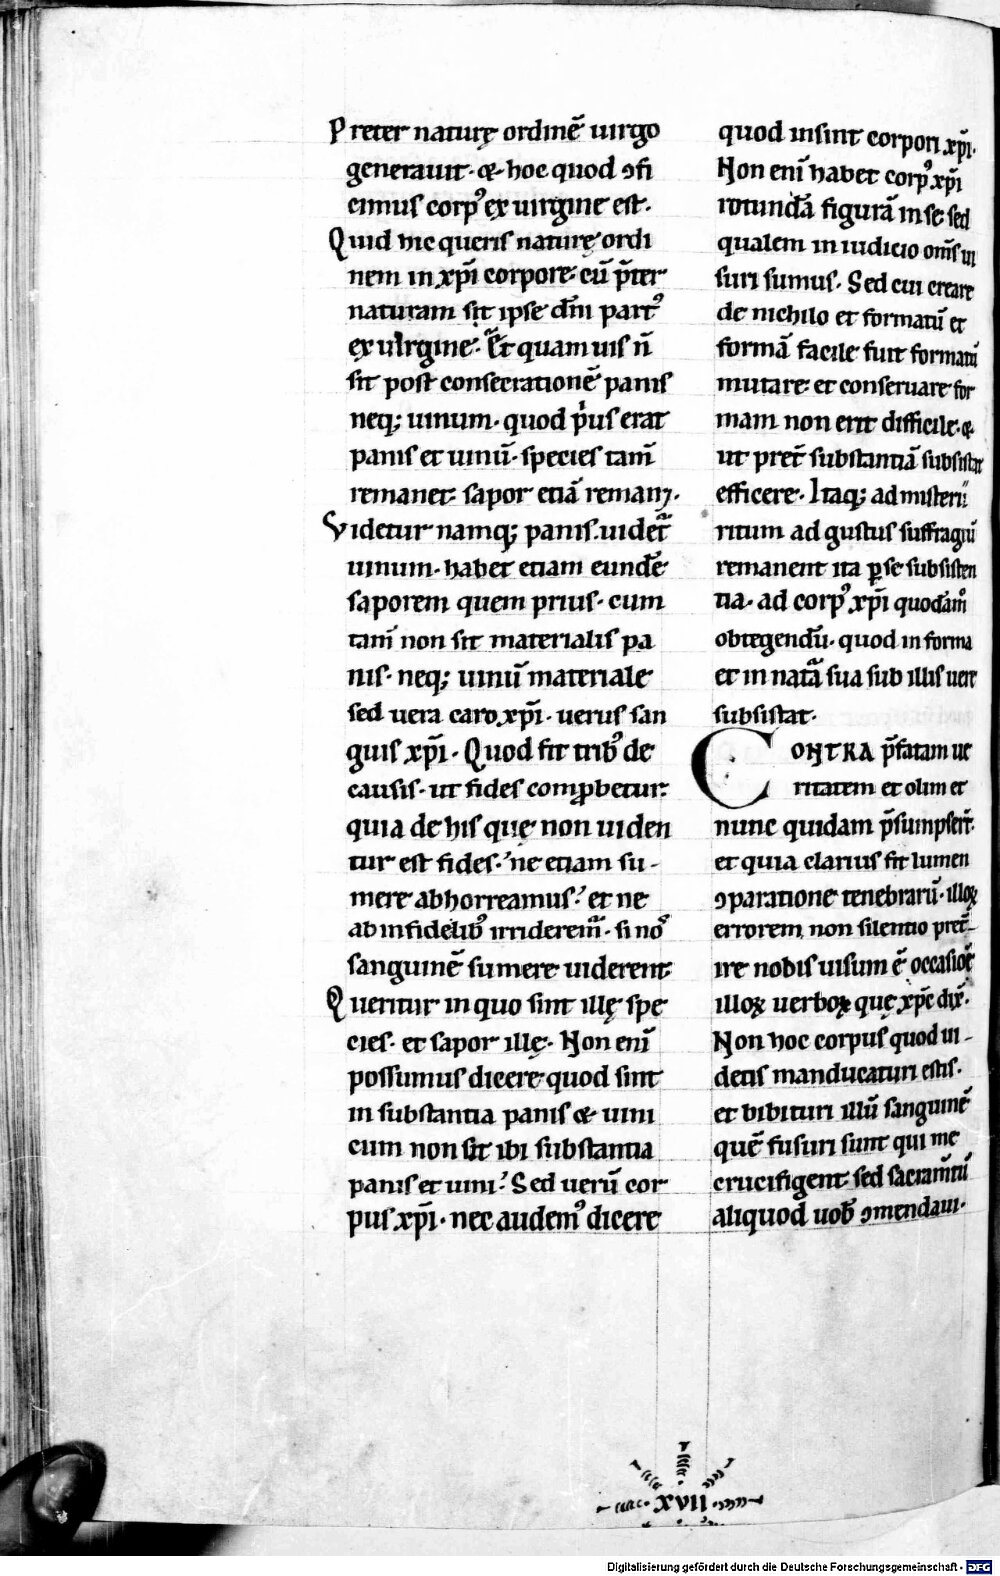 Preter naturę ordinē uirgo
generauit· & hoc quod ↄfi
cimus corpꝰ ex uirgine est·
Quid hic queris naturę ordi
nem in xp̄i corpore· cū p̄ter
naturam sit ipse dn̄i partꝰ
ex uirgine· Et quam uis n̄
sit post consecrationē panis
neq; uinum· quod pͥus erat
panis et uinū· species tam̄
remanet· sapor etiā remanꝫ·
Videtur namq; panis· uidet̄
uinum· habet etiam eundē
saporem quem prius· cum
tam̄ non sit materialis pa
nis· neq; uinū materiale
sed uera caro xp̄i· uerus san
guis xp̄i· Quod fit tribꝰ de
causis· ut fides comꝓbetur·
quia de his quę non uiden
tur est fides· ne etiam su-
mere abhorreamus· et ne
ab infidelibꝰ irriderem̄· si noꝰ
sanguinē sumere uiderent·
Queritur in quo sint illę spe
cies· et sapor ille· Non enī
possumus dicere quod sint
in substantia panis & uini
cum non sit ibi substantia
panis et uini· Sed uerū cor
pus xp̄i· nec audemꝰ dicere
quod insint corpori xp̄i·
Non enī habet corpꝰ xp̄i
rotundā figurā in se sed
qualem in iudicio om̄s ui
suri sumus· Sed cui creare
de nichilo et formatū et
formā facile fuit formatū
mutare et conseruare for
mam non erit difficile· &
ut pret̄ substantiā subsistat
efficere· Itaq; ad misterii
ritum ad gustus suffragiū
remanent ita ꝑ se subsisten
tia· ad corpꝰ xp̄i quodam̊
obtegendū· quod in forma
et in natā sua sub illis uere
subsistat·
CONTRA p̄fatam ue
ritatem et olim et
nunc quidam p̄sumpser̄t·
et quia clarius fit lumen
ↄparatione tenebrarū· illoꝝ
errorem, non silentio pret̄-
ire nobis uisum ē occasiōe
illoꝝ uerboꝝ quę xp̄c dix̄·
Non hoc corpus quod ui-
detis manducaturi estis·
et bibituri illū sanguinē
quē fusuri sunt qui me
crucifigent· sed sacram̄tū
aliquod uob̄ ↄmendaui·
·XVII·
Digitalisierung gefördert durch die Deutsche Forschungsgemeinschaft - DFG